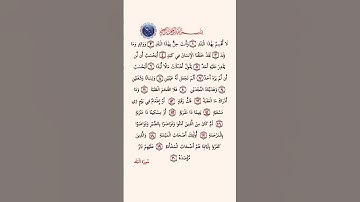 بسم الله الرحمن الرحيم
لا أقسم بهذا البلد ١ وأنت حل بهذا البلد ٢ ووالد وما
ولد ٣ لقد خلقنا الإنسان في كبد ٤ أيحسب أن لن
يقدر عليه أحد ٥ يقول أهلكت مالا لبدا ٦ أيحسب
أن لم يره أحد ٧ ألم نجعل له عينين ٨ ولسانا وشفتين
٩ وهديناه النجدين ١٠ فلا اقتحم العقبة ١١ وما
أدراك ما العقبة ١٢ فك رقبة ١٣ أو إطعام في يوم ذي
مسغبة ١٤ يتيما ذا مقربة ١٥ أو مسكينا ذا متربة
١٦ ثم كان من الذين آمنوا وتواصوا بالصبر وتواصوا
بالمرحمة ١٧ أولئك أصحاب الميمنة ١٨ والذين
كفروا بآياتنا هم أصحاب المشأمة ١٩ عليهم نار
مؤصدة ٢٠
سورة البلد